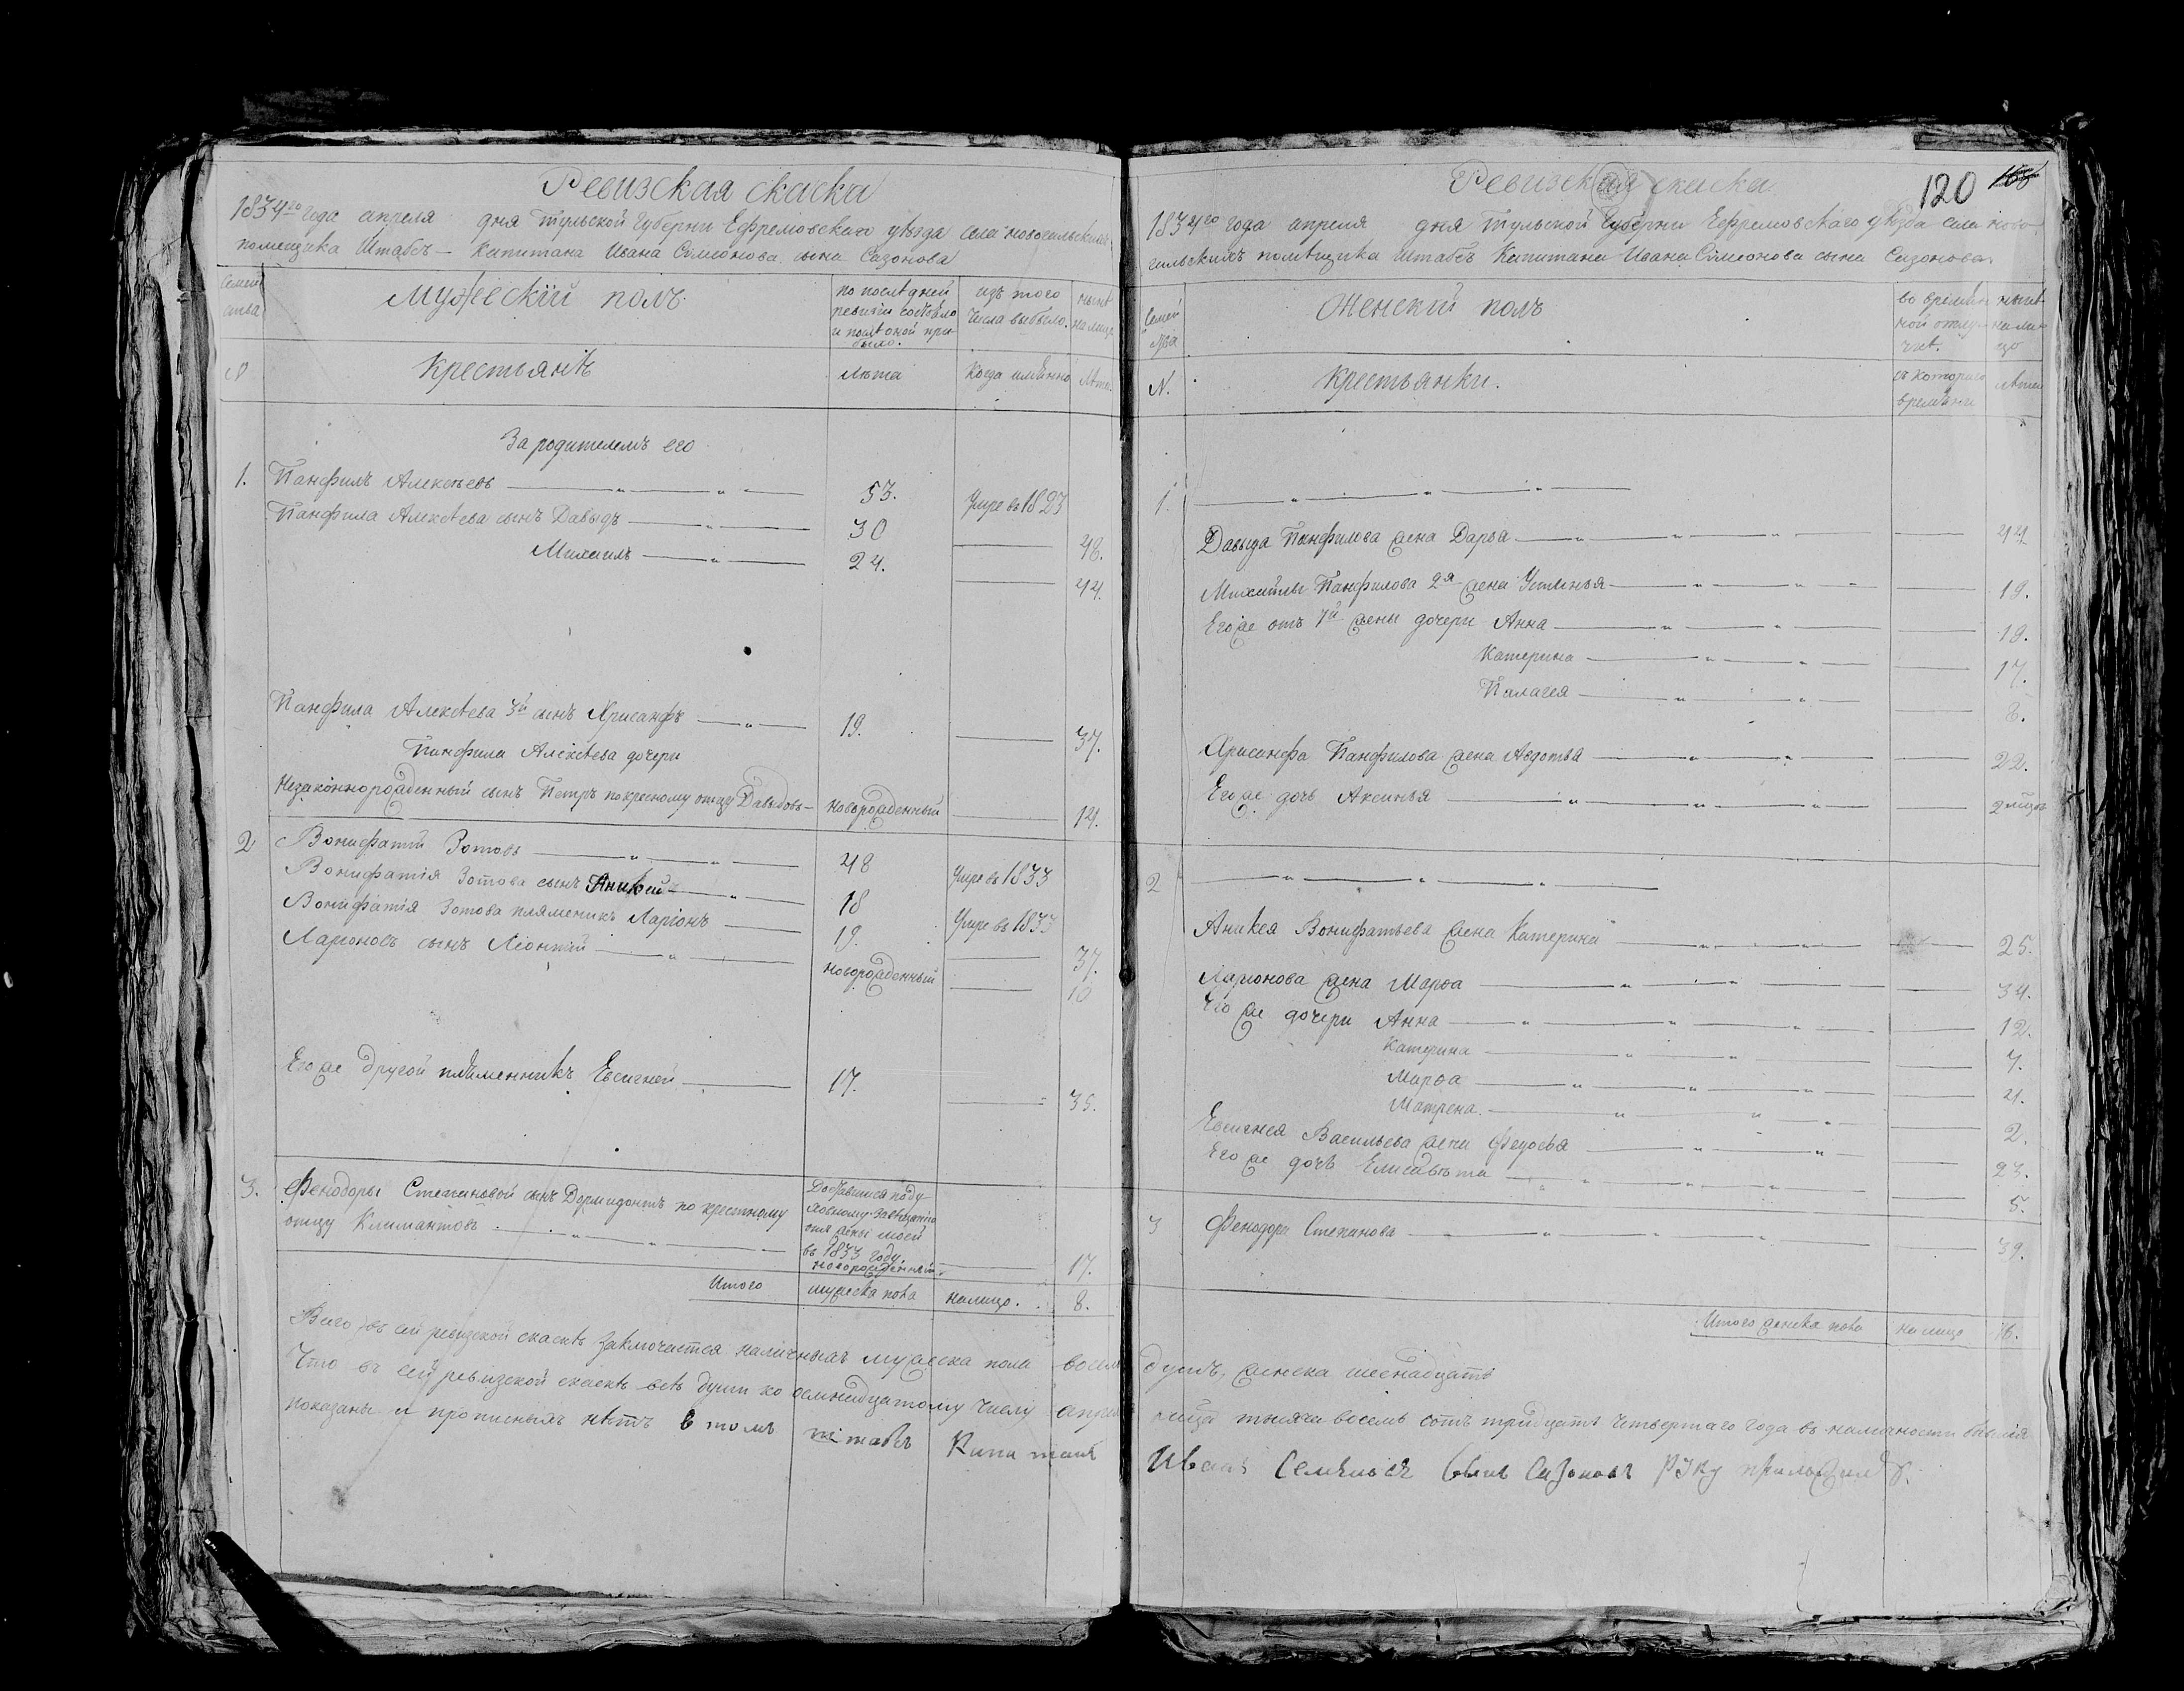 Ревизская скаска
1834го года апреля дня Тульской Губернии Ефремовского уезда села Новосильскихъ
помещика Штабсъ-Капитана Ивана Симионова сына Сазонова
Семей
ства
Мужескiй полъ
по последней
ревизiи состояло
и после оной при-
было.
изъ того
числа выбыло.
ныне
на лицо
№
Крестьяне
Лета
Когда имянно
Лета
За родителемъ его
1. Панфилъ Алексеевъ 53. Умре въ 1823
Панфила Алексеева сынъ Давыдъ 30 48.
Михаилъ 24. 44.
Панфила Алексеева 3й сынъ Хрисанфъ 19. 37.
Панфила Алексеева дочери
Незаконнорожденный сынъ Петръ по кресному отцу Давыдовъ новорожденный 14.
2 Вонифатiй Зотовъ 48 Умре въ 1833
Вонифатiя Зотова сынъ Аникей 18 Умре въ 1833
Вонифатiя Зотова пляменикъ Ларiонъ 19. 37.
Ларионовъ сынъ Леонтiй новорожденный 10
Его же другой племенникъ Евсигней 17. 35.
3. Фенодоры Степановой сынъ Дормидонтъ по крестному
отцу Климантовъ
Доставшися по ду-
ховному завещанiю
отъ жены моей
въ 1833 году.
новорожденный. 17.
Итого мужеска пола налицо. 8.
Всего въ сей ревизской скаске заключается наличныхъ мужеска пола восемь
Что въ сей ревизской скаске все души ко осмнадцатому числу апре
показаны и прописныхъ нетъ в томъ штабсъ Капитанъ
Ревизская скаска
120
168
1834го года апреля дня Тульской Губернии Ефремовскаго уезда села Ново-
сильскихъ помещика Штабсъ Капитана Ивана Симионова сына Сазонова.
Семей
ства
Женскiй полъ
во времен
ной отлу-
чке.
ныне
на ли-
цо
N.
Крестьянки.
съ котораго
времени
Лета
1.
Давыда Панфилова жена Дарья 44
Михайлы Панфилова 2я жена Устинья 19.
Его же отъ 1й жены дочери Анна 19.
Катерина 17.
Палагея 8.
Хрисанфа Панфилова жена Авдотья 22.
Его же дочь Аксинья 2 мцов
2
Аникея Вонифатьева жена Катерина 25.
Ларионова жена Марфа 34.
Его же дочери Анна 12.
Катерина 7.
Марфа 4.
Матрена. 2.
Евсигнея Васильева жена Федосья 23.
Его же дочь Елисавета 5.
3 Фенодора Степанова 39.
Итого женска пола на лицо 16.
душъ, женска шеснадцать
лица тысяча восемь сотъ тридцать четвертаго года въ наличности бывшiя
Иванъ Семеновъ сынъ Сазоновъ руку приложилъ.